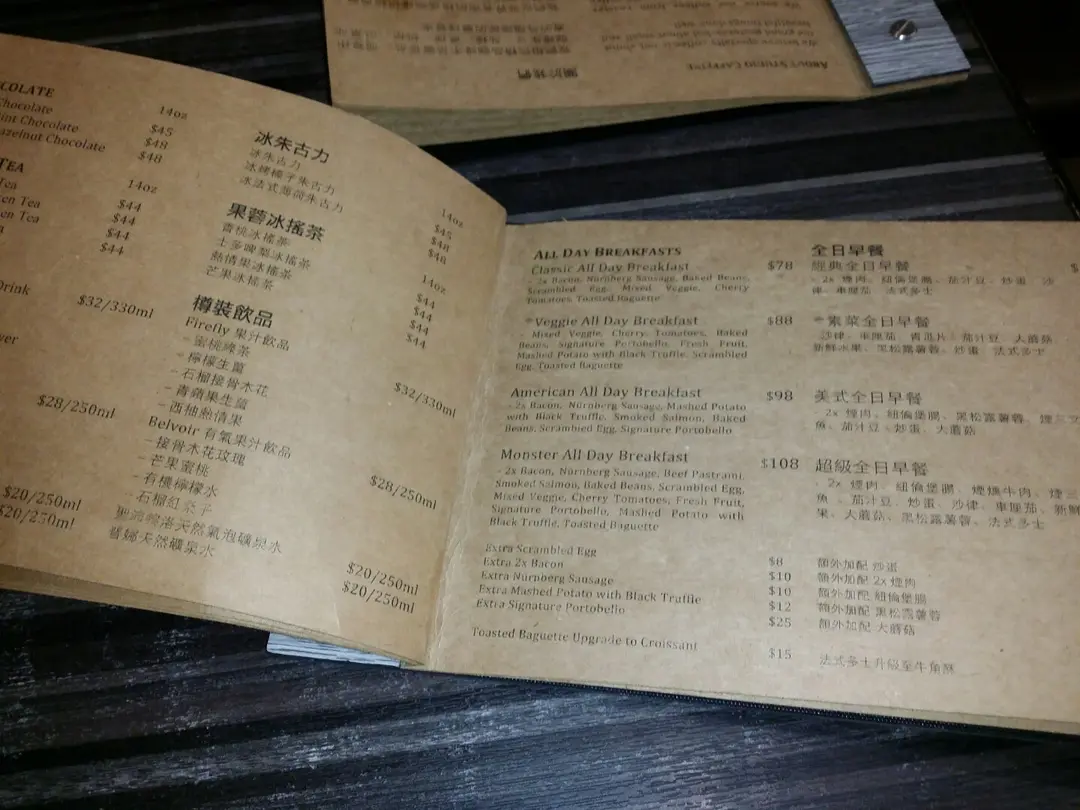 ABOUT STUDIO CAFFEINE
關於我們
COLATE
14oz
Chocolate
$45
int Chocolate
$48
azelnut Chocolate
$48
TEA
14oz
Tea
$44
en Tea
$44
en Tea
$44
$44
Drink
$32/330ml
$28/250ml
$20/250ml
$20/250ml
冰朱古力
14oz
冰朱古力
$45
冰榛子朱古力
$48
冰法式薄荷朱古力
$48
果蓉冰搖茶
14oz
香桃冰搖茶
$44
士多啤梨冰搖茶
$44
熱情果冰搖茶
$44
芒果冰搖茶
$44
樽裝飲品
Firefly 果汁飲品
$32/330ml
- 蜜桃綠茶
- 檸檬生薑
- 石榴接骨木花
- 青蘋果生薑
- 西柚熱情果
Belvoir 有氣果汁飲品
$28/250ml
- 接骨木花玫瑰
- 芒果蜜桃
- 有機檸檬水
- 石榴紅桑子
天然氣泡礦泉水
$20/250ml
天然礦泉水
$20/250ml
ALL DAY BREAKFASTS
全日早餐
Classic All Day Breakfast
$78
經典全日早餐
- 2x Bacon, Nürnberg Sausage, Baked Beans,
Scrambled Egg, Mixed Veggie, Cherry
Tomatoes, Toasted Baguette
- 2x 煙肉、紐倫堡腸、茄汁豆、炒蛋、沙
律、車厘茄、法式多士
Veggie All Day Breakfast
$88
素菜全日早餐
- Mixed Veggie, Cherry Tomatoes, Baked
Beans, Signature Portobello, Fresh Fruit,
Mashed Potato with Black Truffle, Scrambled
Egg, Toasted Baguette
- 沙律、車厘茄、青瓜片、茄汁豆、大蘑菇、
新鮮水果、黑松露薯蓉、炒蛋、法式多士
American All Day Breakfast
$98
美式全日早餐
- 2x Bacon, Nürnberg Sausage, Mashed Potato
with Black Truffle, Smoked Salmon, Baked
Beans, Scrambled Egg, Signature Portobello
- 2x 煙肉、紐倫堡腸、黑松露薯蓉、煙三文
魚、茄汁豆、炒蛋、大蘑菇
Monster All Day Breakfast
$108
超級全日早餐
- 2x Bacon, Nürnberg Sausage, Beef Pastrami,
Smoked Salmon, Baked Beans, Scrambled Egg,
Mixed Veggie, Cherry Tomatoes, Fresh Fruit,
Signature Portobello, Mashed Potato with
Black Truffle, Toasted Baguette
- 2x 煙肉、紐倫堡腸、煙燻牛肉、煙三
魚、茄汁豆、炒蛋、沙律、車厘茄、新鮮
果、大蘑菇、黑松露薯蓉、法式多士
Extra Scrambled Egg
$8
額外加配 炒蛋
Extra 2x Bacon
$10
額外加配 2x 煙肉
Extra Nürnberg Sausage
$10
額外加配 紐倫堡腸
Extra Mashed Potato with Black Truffle
$12
額外加配 黑松露薯蓉
Extra Signature Portobello
$25
額外加配 大蘑菇
Toasted Baguette Upgrade to Croissant
$15
法式多士升級至牛角酥